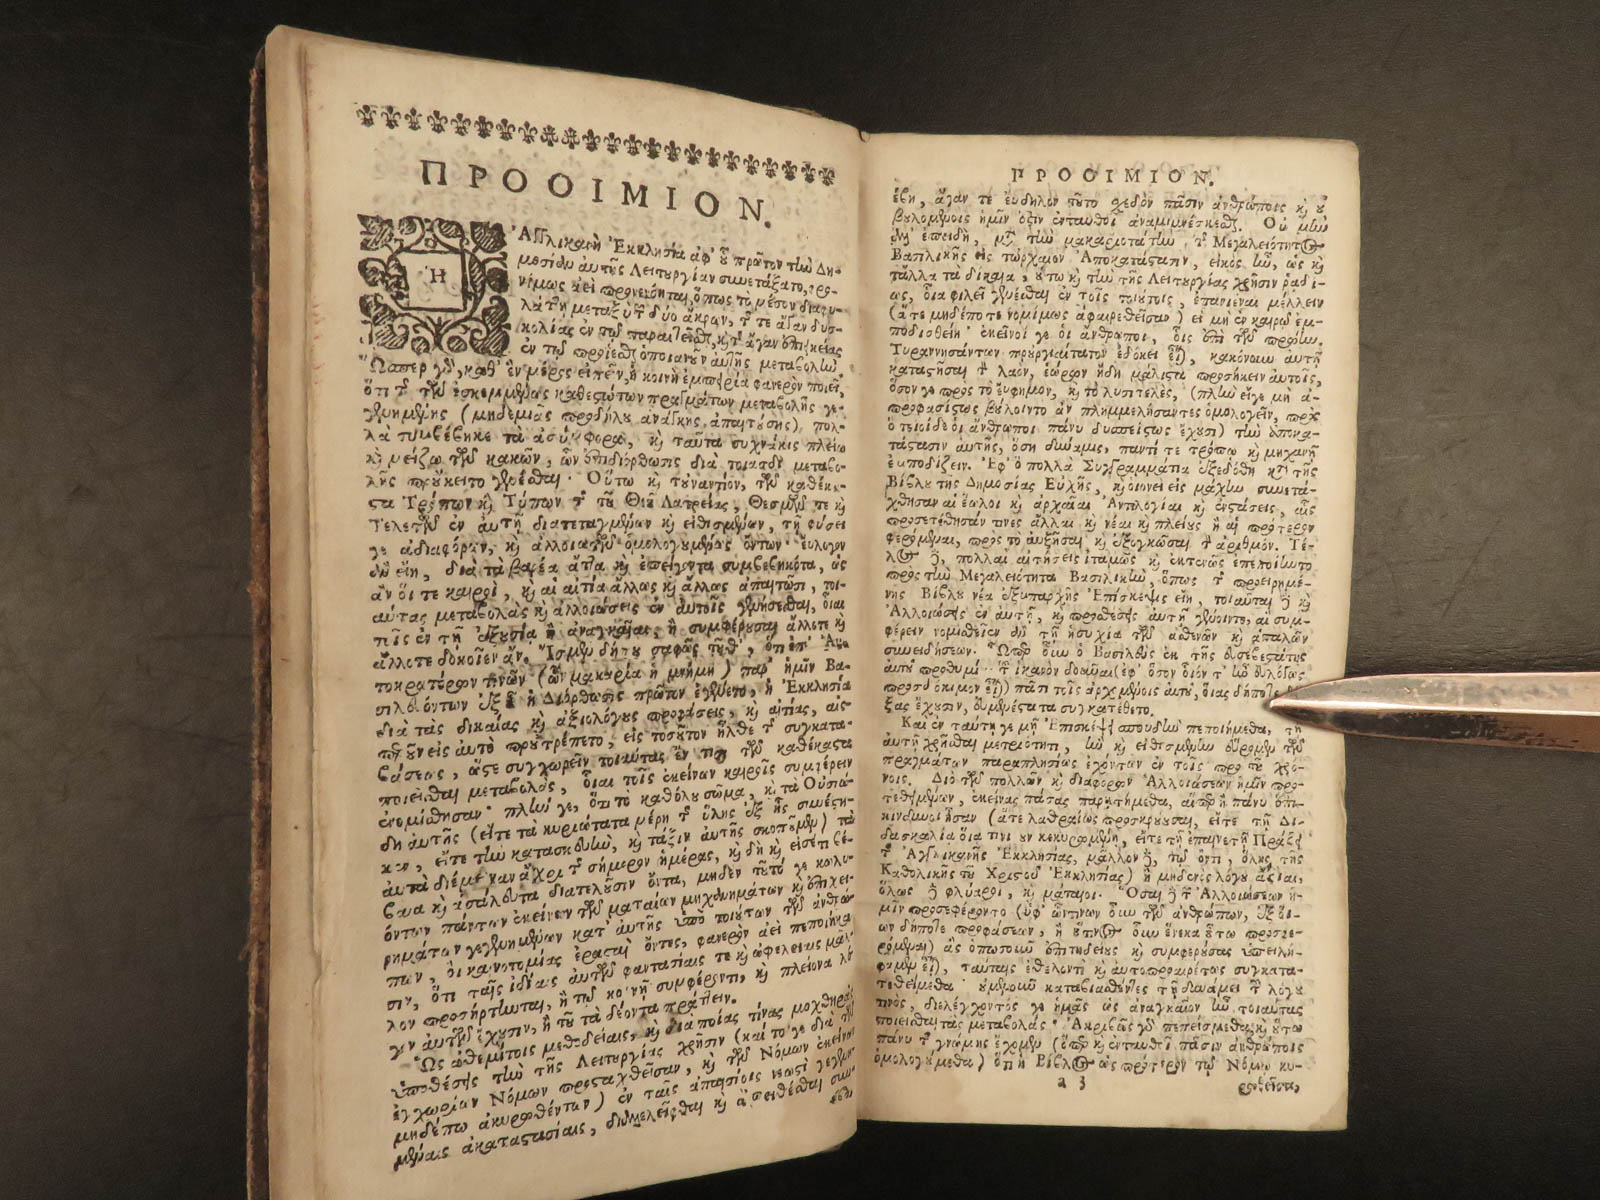 ΠΡΟΟΙΜΙΟΝ.
Ἡ Ἀγγλικανὴ Ἐκκλησία ἀφ' οὗ πρῶτον τὴν Δη-
μοσίαν αὑτῆς Λειτουργίαν συνετάξατο, φρο-
νίμως ἀεὶ προνενόηται, ὅπως τὸ μέσον διαφυ-
λάττῃ μεταξὺ τῶν δύο ἄκρων, τῆς τε ἄγαν δυσ-
κολίας ἐν τῷ
ἐν τῷ
Ὥσπερ γὸ, καθ' ἓν μέρος εἰπεῖν, ἡ κοινὴ ἐμπειρία φανερὸν ποιεῖ,
ὅτι καθεστώτων πραγμάτων μεταβολῆς γε-
γενημένης (μηδεμιᾶς προδήλου ἀνάγκης ἀπαιτούσης) πολ-
λὰ συμβέβηκε τὰ ἀσύμφορα, καὶ ταῦτα συχνάκις πλείω
καὶ μείζω τῶν κακῶν, ὧν ἐπιδιόρθωσις διὰ τοιαύτης μεταβο-
λῆς προὔκειτο γενέσθαι. Οὕτω καὶ τοὐναντίον, τῶν καθέκα-
στα Τρόπων καὶ Τύπων τῆς τοῦ Θεοῦ Λατρείας, Θεσμῶν τε καὶ
Τελετῶν ἐν αὐτῇ διατεταγμένων καὶ εἰθισμένων, τῇ φύσει
γε ἀδιαφόρων, καὶ ἀλλοιωτῶν ὁμολογουμένως ὄντων· εὔλογον
ἂν εἴη, διὰ τὰ βαρέα ἄττα καὶ ἐπείγοντα συμβεβηκότα, ὡς
ἂν οἵ τε καιροὶ, καὶ αἱ αἰτίαι ἄλλως καὶ ἄλλως ἀπαιτῶσι, τοι-
αύτας μεταβολὰς καὶ ἀλλοιώσεις ἐν αὐτοῖς γενήσεσθαι, οἷαι
τοῖς ἐν τῇ ἐξουσίᾳ ἢ ἀναγκαῖαι, ἢ συμφέρουσαι ἄλλοτε καὶ
ἄλλοτε δόκοιεν ἄν. Ἴσμεν δήπου σαφῶς τοῦθ', ὅτι ἐπ' Αὐ-
τοκρατόρων τινῶν (ὧν μακαρία ἡ μνήμη) παρ' ἡμῖν Βα-
σιλευόντων ἐξ οὗ ἡ Διόρθωσις πρῶτον ἐγένετο, ἡ Ἐκκλησία
διὰ τὰς δικαίας καὶ ἀξιολόγους προφάσεις, καὶ αἰτίας, αἵσ-
περ οὖν εἰς αὐτὸ προὐτρέπετο, εἰς τοσοῦτον ἦλθε τῆς συγκατα-
βάσεως, ὥστε συγχωρεῖν τοιαύτας ἔν τισι τῶν καθέκαστα
ποιεῖσθαι μεταβολὰς, οἷαι τοῖς ἐκείνων καιροῖς συμφέρειν
ἐνομίσθησαν· πλήν γε, ὅτι τὸ καθόλου σῶμα, καὶ τὰ Οὐσιώ-
δη αὐτῆς (εἴτε τὰ κυριώτατα μέρη τῆς ὕλης ἐξ ἧς συνέστη-
κεν, εἴτε τὴν κατασκευὴν, καὶ τάξιν αὐτῆς σκοποῦμεν) τὰ
αὐτὰ διέμειναν ἄχρι τῆς σήμερον ἡμέρας, καὶ δὴ καὶ εἰσέτι βέ-
βαια καὶ ἀσάλευτα διατελοῦσιν ὄντα, μηδὲν τοῦτό γε κωλυ-
όντων πάντων ἐκείνων τῶν ματαίων μηχανημάτων καὶ ἐπιχει-
ρημάτων γεγενημένων κατ' αὐτῆς ὑπὸ τοιούτων τῶν ἀνθρώ-
πων, οἱ καινοτομίας ἐρασταὶ ὄντες, φανερὸν ἀεὶ πεποιήκα-
σιν, ὅτι ταῖς ἰδίαις αὐτῶν φαντασίαις τε καὶ ὠφελείαις μᾶλ-
λον προσήρτωνται, ἢ τῷ κοινῇ συμφέροντι, καὶ πλείονα λό-
γον αὐτῶν ἔχουσιν, ἢ τοῦ τὰ δέοντα πράττειν.
Ὡς ἀθεμίτοις μεθοδείαις, καὶ διὰ ποίας τινας μοχθηρὰς
ὑποθέσεις τὴν τῆς Λειτουργίας χρῆσιν (καίτοι γε διὰ τῶν
ἐγχωρίων Νόμων προσταχθεῖσαν, καὶ τῶν Νόμων ἐκείνων
μηδέπω ἀκυρωθέντων) ἐν ταῖς ἀπαισίοις νεωστὶ γεγενη-
μέναις ἀκαταστασίαις, διαμελεῖσθαι καὶ ἀπειθέσθαι συν-
έβη,
ΠΡΟΟΙΜΙΟΝ.
έβη, ἄγαν τε εὔδηλον τοῦτο σχεδὸν πᾶσιν ἀνθρώποις καὶ οὐ
βουλομένοις ἡμῖν ἐστιν ἐνταυθοῖ ἀναμιμνέσκεσθαι. Οὐ μὴν
ἀλλ' ἐπειδὴ, μετὰ τὴν μακαριοτάτην τῆς Μεγαλειότητος
Βασιλικῆς εἰς τὠρχαῖον Ἀποκατάστασιν, εἰκὸς ἦν, ὡς καὶ
τἄλλα τὰ δίκαια, οὕτω καὶ τὴν τῆς Λειτουργίας χρῆσιν ῥαδί-
ως, οἷα φιλεῖ γενέσθαι ἐν τοῖς τοιούτοις, ἐπανιέναι μέλλειν
(ἅτε μηδέποτε νομίμως ἀφαιρεθεῖσαν) εἰ μὴ ἐν καιρῷ ἐμ-
ποδισθείη· ἐκεῖνοί γε οἱ ἄνθρωποι, οἷς ἐπὶ τῶν πρώην
Τυραννησάντων προὐργιαίτατον ἐδόκει εἶναι, κακόνουν αὐτῇ
καταστῆσαι τὸν λαὸν, ἑώρων ἤδη μάλιστα προσήκειν αὐτοῖς,
ὅσον γε πρὸς τὸ εὔφημον, καὶ τὸ λυσιτελὲς, (πλὴν εἴγε μὴ ἀ-
προφασίστως βούλοιντο ἂν πλημμελήσαντες ὁμολογεῖν, πρὸς
ὃ τοιοίδε οἱ ἄνθρωποι πάνυ δυσπείστως ἔχουσι) τὴν ἀποκα-
τάστασιν αὐτῆς, ὅσῃ δυνάμει, παντί τε τρόπῳ καὶ μηχανῇ
ἐμποδίζειν. Ἐφ' ὃ πολλὰ Συγγράμματα ἐξεδόθη κατὰ τῆς
Βίβλου τῆς Δημοσίας Εὐχῆς, καὶ οἱονεὶ εἰς μάχην συνετά-
χθησαν αἱ ἕωλοι καὶ ἀρχαῖαι Ἀντιλογίαι καὶ ἐνστάσεις, αἷς
προσετέθησάν τινες ἄλλαι καὶ νέαι καὶ πλείους ἢ αἱ πρότερον
φερόμεναι, πρὸς τὸ αὐξῆσαι καὶ ἐξογκῶσαι τὸν ἀριθμόν. Τέ-
λος δὲ, πολλαὶ αἰτήσεις ἰταμῶς καὶ ἐκτενῶς ἐπεποίηντο
πρὸς τὴν Μεγαλειότητα Βασιλικὴν, ὅπως τῆς προειρημέ-
νης Βίβλου νέα ἐξυπαρχῆς Ἐπίσκεψις εἴη, τοιαῦται δὲ καὶ
Ἀλλοιώσεις ἐν αὐτῇ, καὶ προσθέσεις αὐτῇ γένοιντο, αἳ συμ-
φέρειν νομισθεῖεν ἂν τῇ ἡσυχίᾳ τῶν ἀσθενῶν καὶ ἁπαλῶν
συνειδήσεων. Ὧπερ οὖν ὁ Βασιλεὺς ἐκ τῆς εὐσεβεστάτης
αὑτοῦ προθυμίας τοῦ ἱκανὸν δοῦναι (ἐφ' ὅσον οἷόν τ' ἦν εὐλόγως
προσδόκιμον εἶναι) πᾶσι τοῖς ἀρχομένοις αὐτοῦ, οἵας δήποτε δό-
ξας ἔχουσιν, εὐμενέστατα συγκατέθετο.
Καὶ ἐν ταύτῃ γε μὴν Ἐπισκέψει σπουδὴν πεποιήμεθα, τῇ
αὐτῇ χρῆσθαι μετριότητι, ἣν καὶ εἰθισμένην εὕρομεν τῶν
πραγμάτων παραπλησίως ἐχόντων ἐν τοῖς πρὸ τοῦ χρό-
νοις. Διὸ τῶν πολλῶν καὶ διαφόρων Ἀλλοιώσεων ἡμῖν προ-
τεθειμένων, ἐκείνας πάσας παρῃτήμεθα, αἵπερ ἢ πάνυ ἐπι-
κίνδυνοι ἦσαν (ἅτε λαθραίως προσκρούουσαι, εἴτε τῇ Δι-
δασκαλίᾳ οἵᾳ τινι οὖν κεκυρωμένῃ, εἴτε τῇ ἐπαινετῇ Πράξει
τῆς Ἀγγλικανῆς Ἐκκλησίας, μᾶλλον δὲ, τῷ ὄντι, ὅλης τῆς
Καθολικῆς τοῦ Χριστοῦ Ἐκκλησίας) ἢ μηδενὸς λόγου ἄξιαι,
ὅλως δὲ φλύαροι, καὶ μάταιοι. Ὅσαι δὲ τῶν Ἀλλοιώσεων ἡ-
μῖν προσεφέροντο (ὑφ' ὧντινων οὖν τῶν ἀνθρώπων, ἐξ οἵ-
ων δήποτε προφάσεων, ἢ οὗτινος οὖν ἕνεκα οὕτω προσφε-
ρόμεναι) ἃς ὁπωσοῦν ἐπιτηδείους καὶ συμφερούσας ὑπειλή-
φαμεν εἶναι, ταύταις ἐθελοντὶ καὶ αὐτοπροαιρέτως συγκατα-
τεθείμεθα· οὐ μὲν οὖν καταβιασθέντες τῇ δυνάμει τοῦ λόγου
τινὸς, διελέγχοντός γε ἡμᾶς ὡς ἀναγκαῖον ἦν τοιαύτας
ποιεῖσθαι τὰς μεταβολάς· Ἀκριβῶς γὸ πεπείσμεθα, καὶ οὕτω
πάνυ τῆς γνώμης ἔχομεν (ὅπερ καὶ ἐνταυθοῖ πᾶσιν ἀνθρώποις
ὁμολογούμεθα) ὅτι ἡ Βίβλος ὡς πρότερον τῷ Νόμῳ κυ-
a 3
ρωθεῖσα,